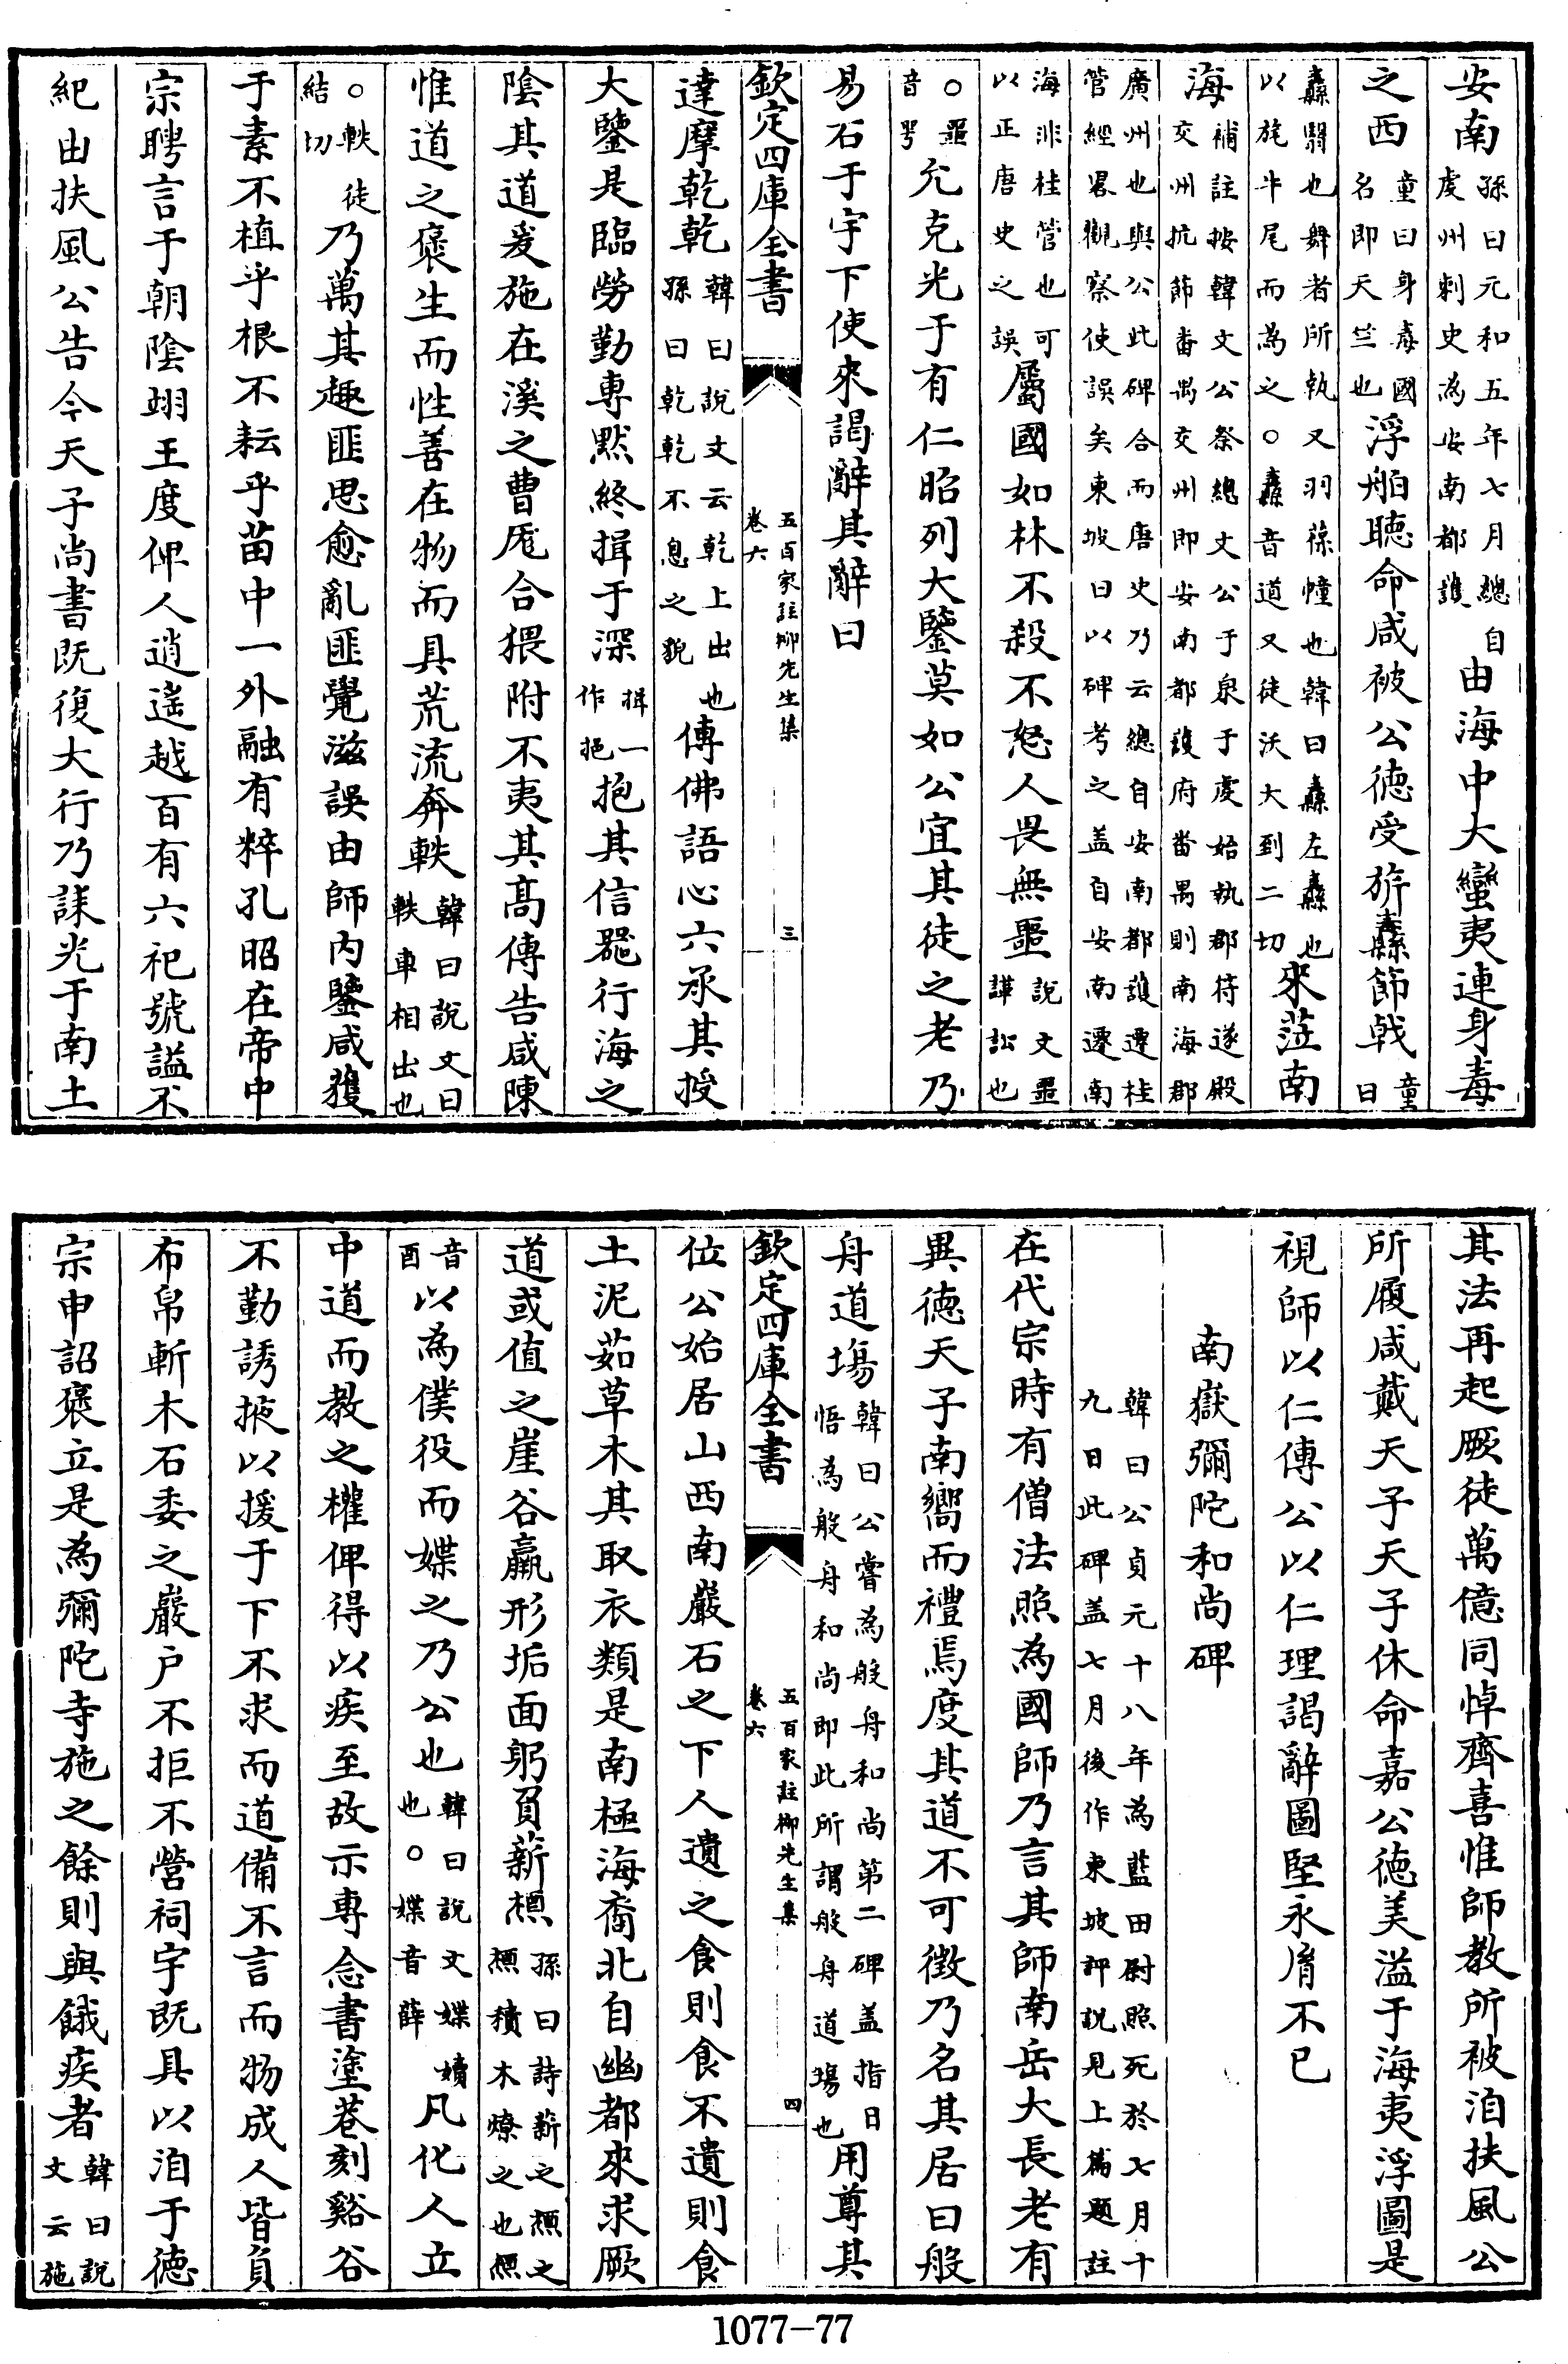 安南孫曰元和五年七月總自虔州刺史為安南都護由海中大蠻夷連身毒
之西童曰身毒國名即天竺也浮舶聽命咸被公德受旂纛節戟童曰
纛翳也舞者所執又羽葆幢也韓曰纛左纛也以旄牛尾而為之○纛音道又徒沃大到二切來蒞南
海補註按韓文公祭總文公于泉于虔始執郡符遂殿交州抗節番禺交州即安南都護府番禺則南海郡
廣州也與公此碑合而唐史乃云總自安南都護遷桂管經畧觀察使誤矣東坡曰以碑考之盖自安南遷南
海非桂管也可以正唐史之誤屬國如林不殺不怒人畏無噩說文噩譁訟也
○噩音咢允克光于有仁昭列大鑒莫如公宜其徒之老乃
易石于宇下使來謁辭其辭曰
欽定四庫全書 五百家註柳先生集 卷六 三
達摩乾乾韓曰說文云乾上出也孫曰乾乾不息之貌傳佛語心六承其授
大鑒是臨勞勤專默終揖于深揖一作挹抱其信器行海之
陰其道爰施在溪之曹厖合猥附不夷其高傳告咸陳
惟道之褒生而性善在物而具荒流奔軼韓曰說文曰軼車相出也
○軼徒結切乃萬其趣匪思愈亂匪覺滋誤由師内鑒咸獲
于素不植乎根不耘乎苗中一外融有粹孔昭在帝中
宗聘言于朝陰翊王度俾人逍遥越百有六祀號謚不
紀由扶風公告今天子尚書既復大行乃誄光于南土
其法再起厥徒萬億同悼齊喜惟師教所被洎扶風公
所履咸戴天子天子休命嘉公德美溢于海夷浮圖是
視師以仁傳公以仁理謁辭圖堅永胤不已
南嶽彌陀和尚碑
韓曰公貞元十八年為藍田尉照死於七月十九日此碑盖七月後作東坡評說見上篇題註
在代宗時有僧法照為國師乃言其師南岳大長老有
異德天子南嚮而禮焉度其道不可徵乃名其居曰般
舟道塲韓曰公嘗為般舟和尚第二碑盖指日悟為般舟和尚即此所謂般舟道塲也用尊其
欽定四庫全書 五百家註柳先生集 卷六 四
位公始居山西南巖石之下人遺之食則食不遺則食
土泥茹草木其取衣類是南極海裔北自幽都來求厥
道或值之崖谷羸形垢面躬負薪槱孫曰詩薪之槱之槱積木燎之也槱
音酉以為僕役而媟之乃公也韓曰說文媟嬻也○媟音薛凡化人立
中道而教之權俾得以疾至故示專念書塗巷刻谿谷
不勤誘掖以援于下不求而道備不言而物成人皆負
布帛斬木石委之巖户不拒不營祠宇既具以洎于德
宗申詔褒立是為彌陀寺施之餘則與餓疾者韓曰說文云施
1077-77